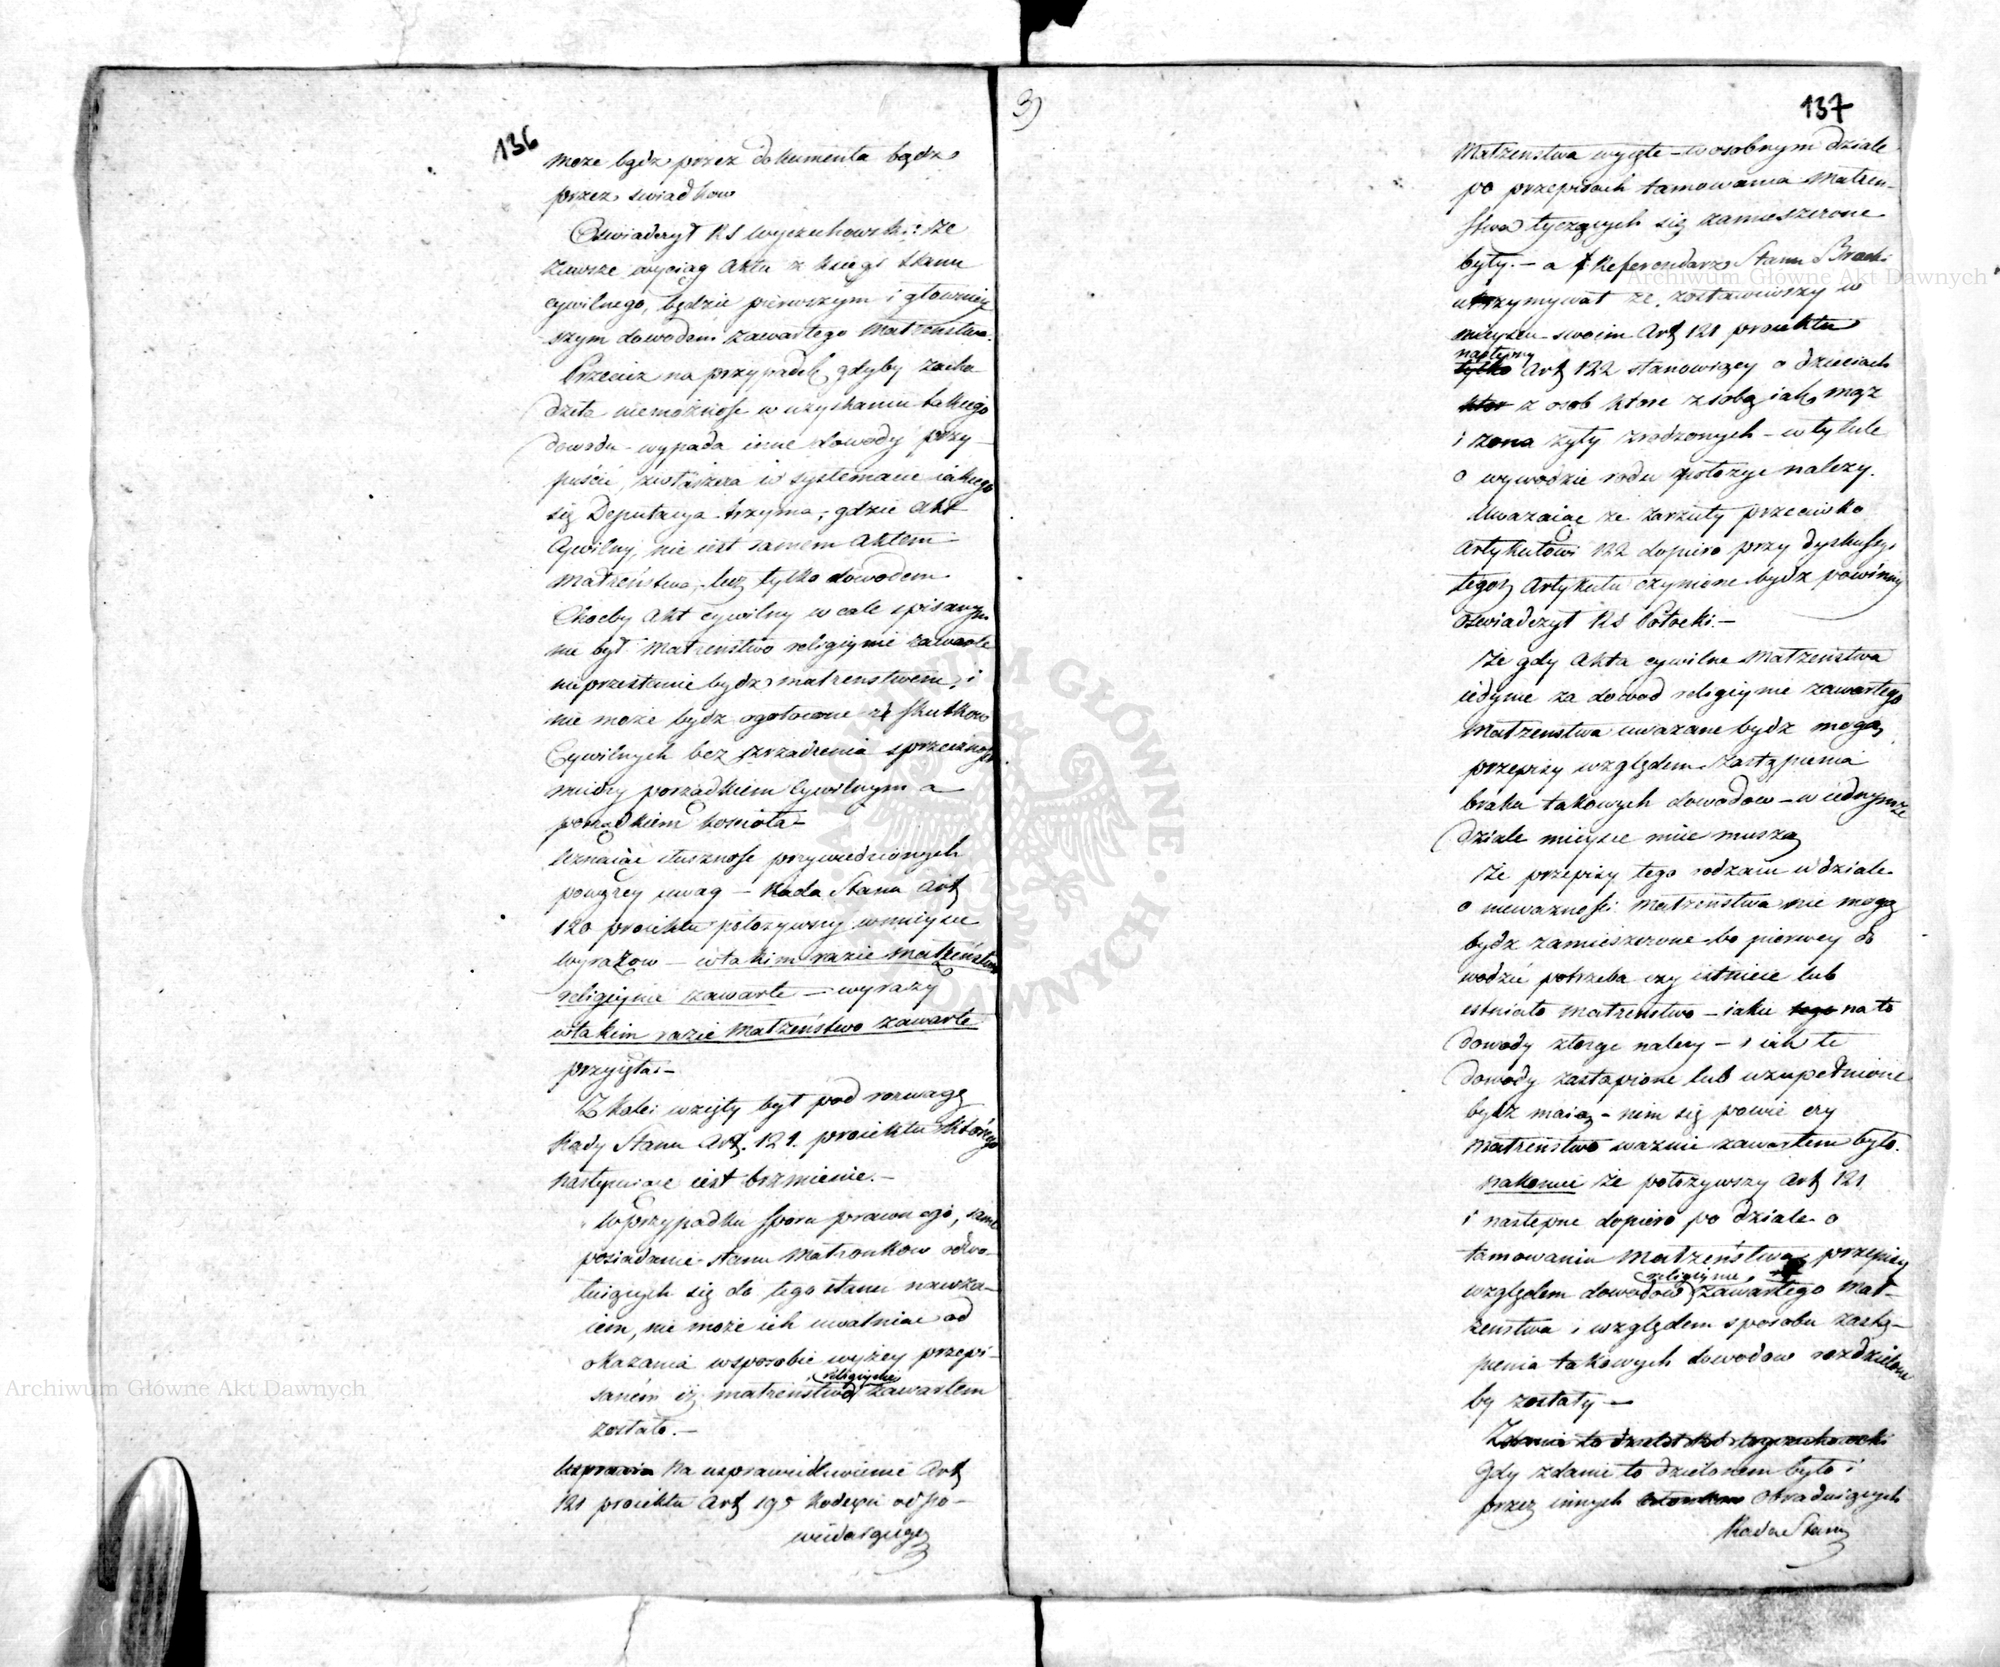 136
może bądź przez dokumenta bądź
przez swiadkow
Oswiadczył RS Wyczechowski: że
zawsze wyciąg Aktu z księgi stanu
cywilnego, będzie pierwszym i głowniey
szym dowodem zawartego Małżenstwa.
Przecież na przypadek gdyby zacho
dziła niemożność w uzyskaniu takiego
dowodu - wypada inne dowody przy-
puścić, zwłaszcza w systemacie iakiego
się Deputacya trzyma; gdzie Akt
Cywilny, nie iest samem Aktem
Małżeństwa, lecz tylko dowodem
Choćby Akt cywilny w cale spisanym
nie był Małżenstwo religiynie zawarte
nieprzestanie bydź małżenstwem, i
nie może bydź ogołocone ze skutkow
Cywilnych bez zrządzenia sprzeczności
między porządkiem Cywilnym a
porządkiem kosciota-
Uznaiąc słuszność przywiedzionych
powyżey uwag - Rada Stanu Art
120 proiektu położywszy w mieysce
wyrazow - w takim razie małżeństwo
religiynie zawarte - wyrazy
w takim razie Małżeństwo zawarte
przyięła.-
Z kolei wzięty był pod rozwagę
Rady Stanu Art. 121. proiektu którego
następuiące iest brzmienie.-
"W przypadku sporu prawnego, samo
posiadanie stanu Małżonkow odwo-
łuiących się do tego stanu nawza-
iem, nie może ich uwalniać od
okazania w sposobie wyżey przepi-
religiynie
sanem iż małżeństwo zawartem
zostało.-
Usprawie na usprawiedliwienie Art
121 proiektu Art 195 kodexu odpo-
wiadaiącego
3)
137
Małżenstwa wyięte - w osobnym dziale
po przepisach tamowania Małżen-
stwa tyczących się zamieszczone
były. - a Referendarz Stanu Brocki
utrzymywał że zostawiwszy w
mieyscu swoim Art 121 proiektu
następny
tylko Art 122 stanowiący o dzieciach
ktor z osob które z sobą iako mąż
i żona żyły zrodzonych - w tytule
o wywodzie rodu położyć należy.
Uważaiąc że zarzuty przeciwko
Artykułowi 122 dopiero przy dyskussyi
tegoż Artykułu czynione bydź powinny
oświadczył RS Potocki. -
Że gdy Akta cywilne Małżeństwa
iedynie za dowod religiynie zawartego
Małżenstwa uważane bydź mogą,
przepisy względem zastąpienia
braku takowych dowodow - w iednymże
dziale mieysce mieć muszą
Że przepisy tego rodzaiu w dziale
o nieważności Małżeństwa nie mogą
bydź zamieszczone bo pierwey do
wodzić potrzeba czy istnieie lub
istniało Małżenstwo - iakie tego na to
dowody złożyć należy - i iak te
dowody zastąpione lub uzupełnione
bydź maią - nim się powie czy
Małżeństwo ważnie zawartem było.
nakoniec że położywszy Art 121
i następne dopiero po dziale o
tamowaniu Małżeństwa, przepisy
religiynie
względem dowodow zawartego Mał-
żenstwa i względem sposobu zastą-
pienia takowych dowodow rozdzielone
by zostały -
Zdanie to dzielił RS Wyczechowski
Gdy zdanie to dzielonem było i
przez innych członkow obraduiących
Rada Stanu